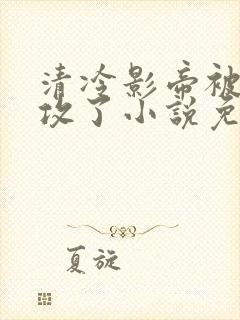 清冷影帝被
攻了小说免
夏旋